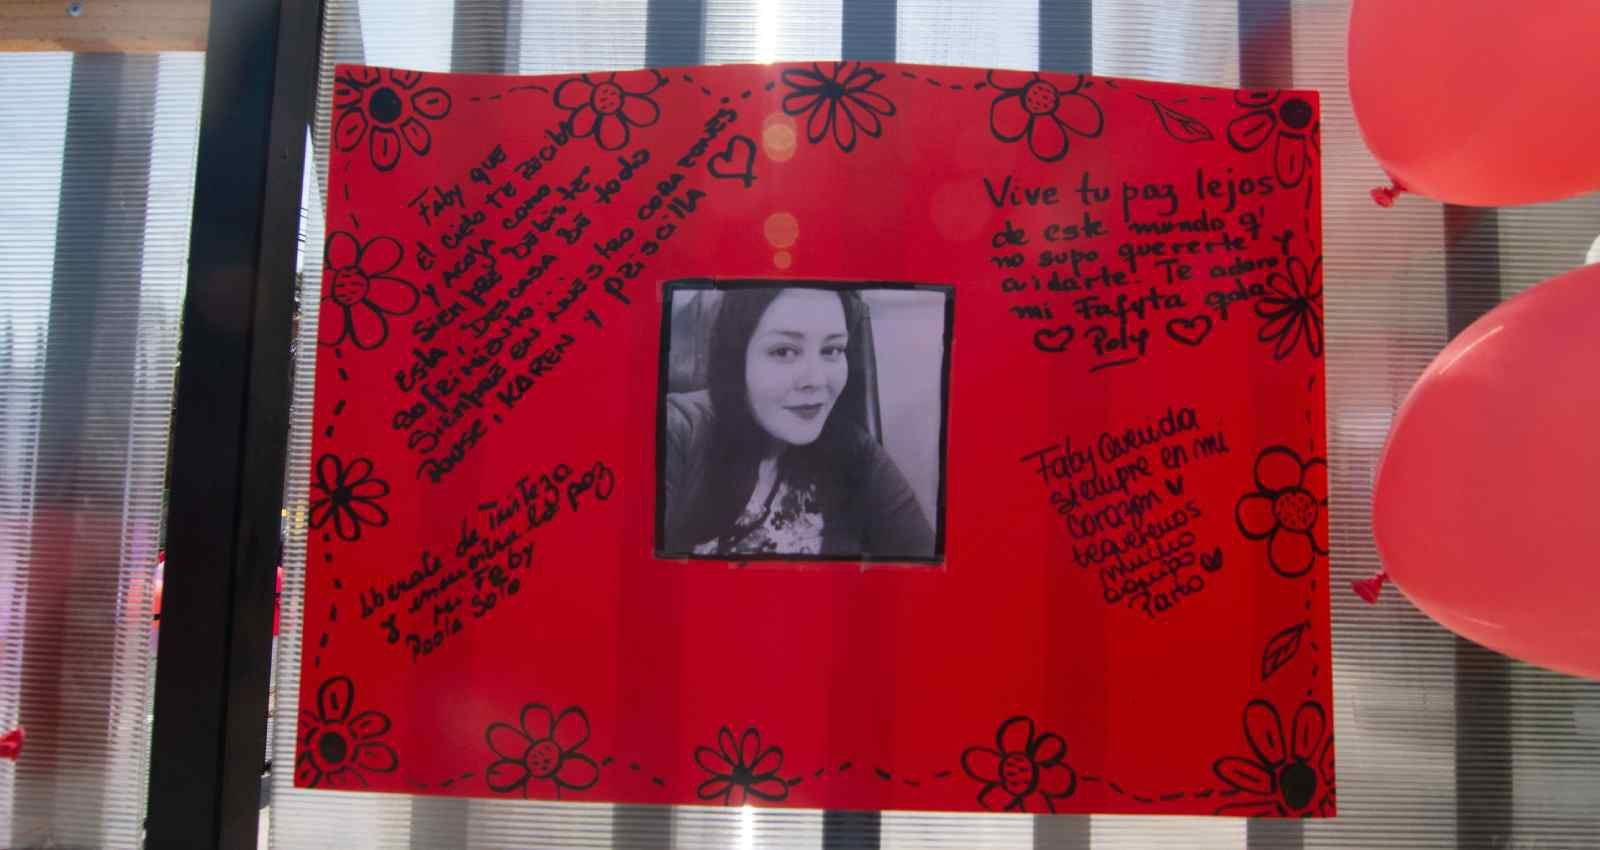 Faby que
el cielo te reciba
y acoja como
siempre debiste
esta, descansa de todo
sofrimiento...
siempre en nuestro corazones
Rouse, KAREN y PRISCILLA
Liberate de tristeza
y encuentra la paz
Mi Faby
Paola Soto
Vive tu paz lejos
de este mundo q'
no supo quererte y
cuidarte. Te adoro
mi Fafyta gala
Poly
Faby Querida
siempre en mi
Corazon
tequeremos
mucho
equipo